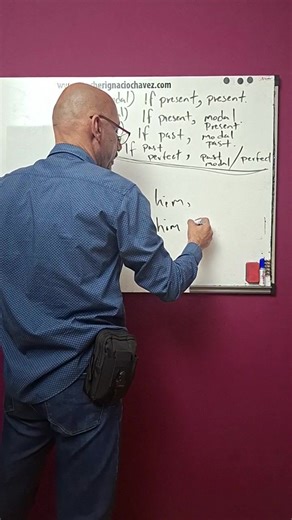 ignaciochavez.com
If present, present.
If present, modal
present.
If past, modal
past.
If past
perfect, past
modal/perfect
him,
him